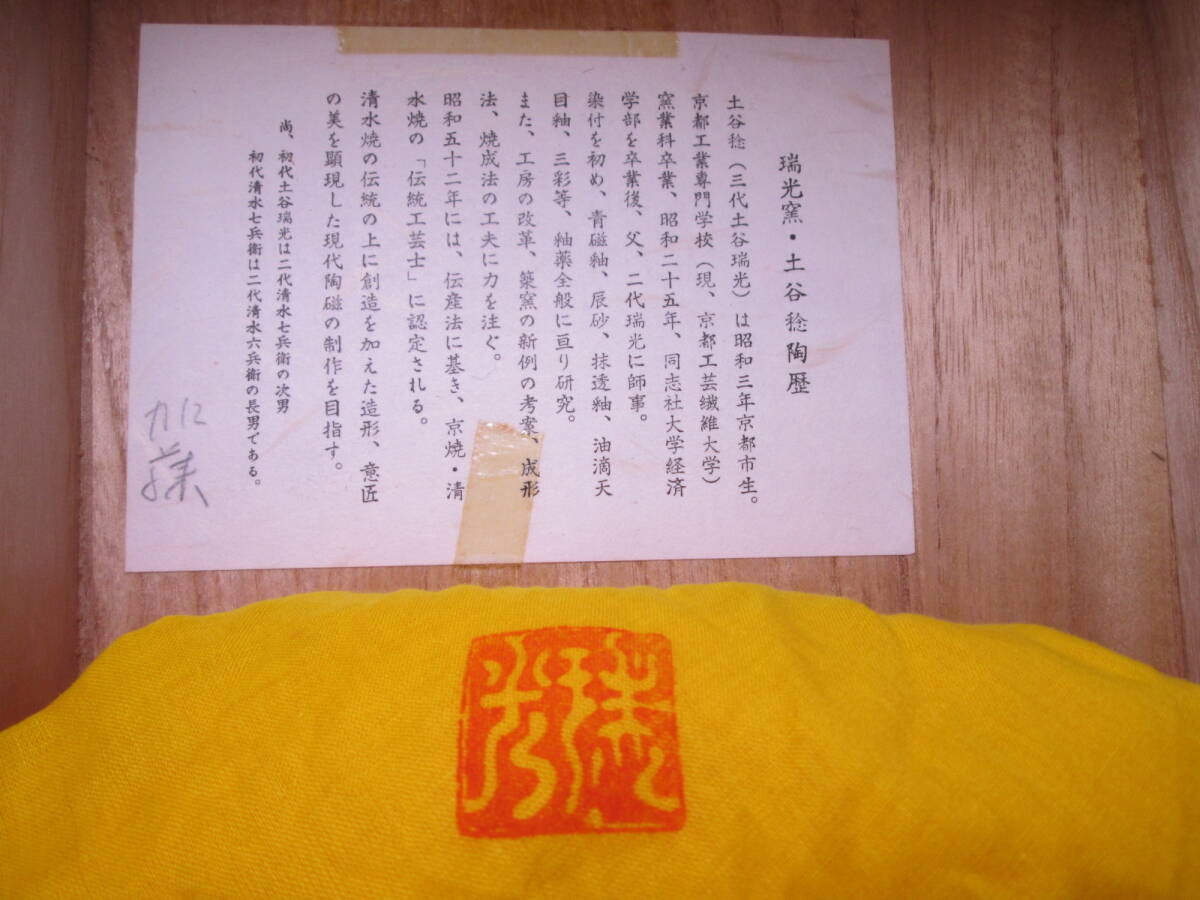 瑞光窯・土谷稔陶歴
土谷稔（三代土谷瑞光）は昭和三年京都市生。
京都工業専門学校（現、京都工芸繊維大学）
窯業科卒業、昭和二十五年、同志社大学経済
学部を卒業後、父、二代瑞光に師事。
染付を初め、青磁釉、辰砂、抹透釉、油滴天
目釉、三彩等、釉薬全般に亘り研究。
また、工房の改革、築窯の新例の考案、成形
法、焼成法の工夫に力を注ぐ。
昭和五十二年には、伝産法に基き、京焼・清
水焼の「伝統工芸士」に認定される。
清水焼の伝統の上に創造を加えた造形、意匠
の美を顕現した現代陶磁の制作を目指す。
尚、初代土谷瑞光は二代清水七兵衛の次男
初代清水七兵衛は二代清水六兵衛の長男である。
加藤